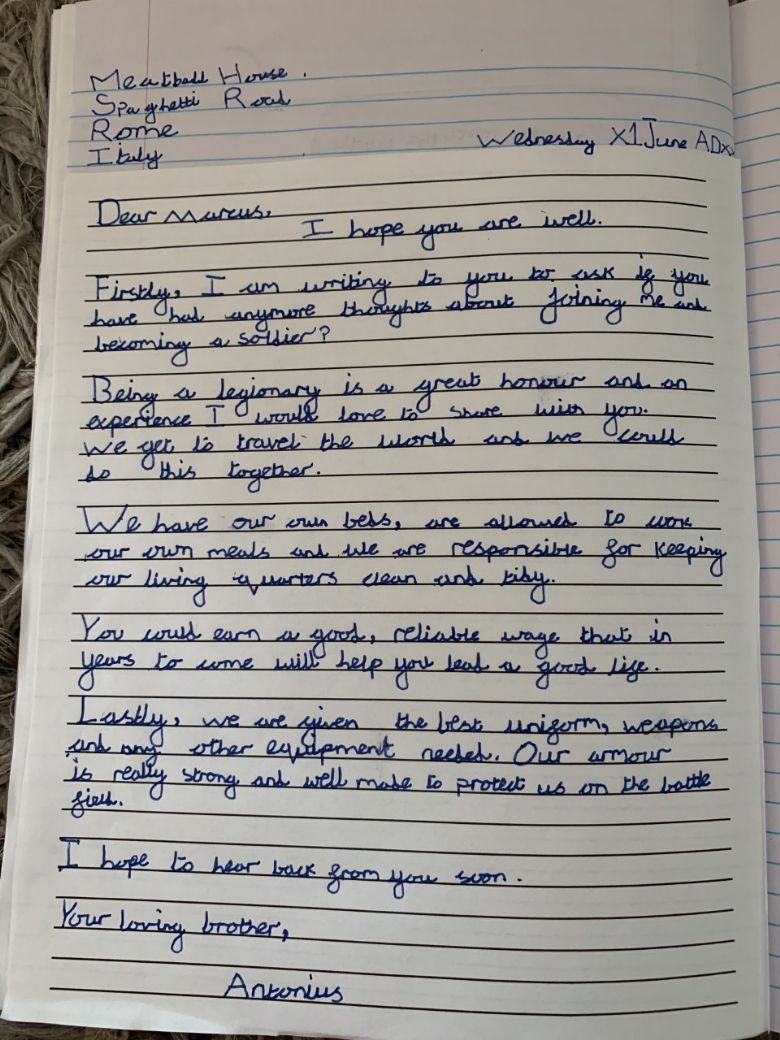 Meatball House.
Spaghetti Road
Rome
Italy
Wednesday X1 June AD
Dear Marcus,
I hope you are well.
Firstly, I am writing to you to ask if you
have had anymore thoughts about joining me and
becoming a soldier?
Being a legionary is a great honour and an
experience I would love to share with you.
We get to travel the world and we could
do this together.
We have our own beds, are allowed to cook
our own meals and we are responsible for keeping
our living quarters clean and tidy.
You could earn a good, reliable wage that in
years to come will help you lead a good life.
Lastly, we are given the best uniform, weapons
and any other equipment needed. Our armour
is really strong and well made to protect us on the battle
field.
I hope to hear back from you soon.
Your loving brother,
Antonius